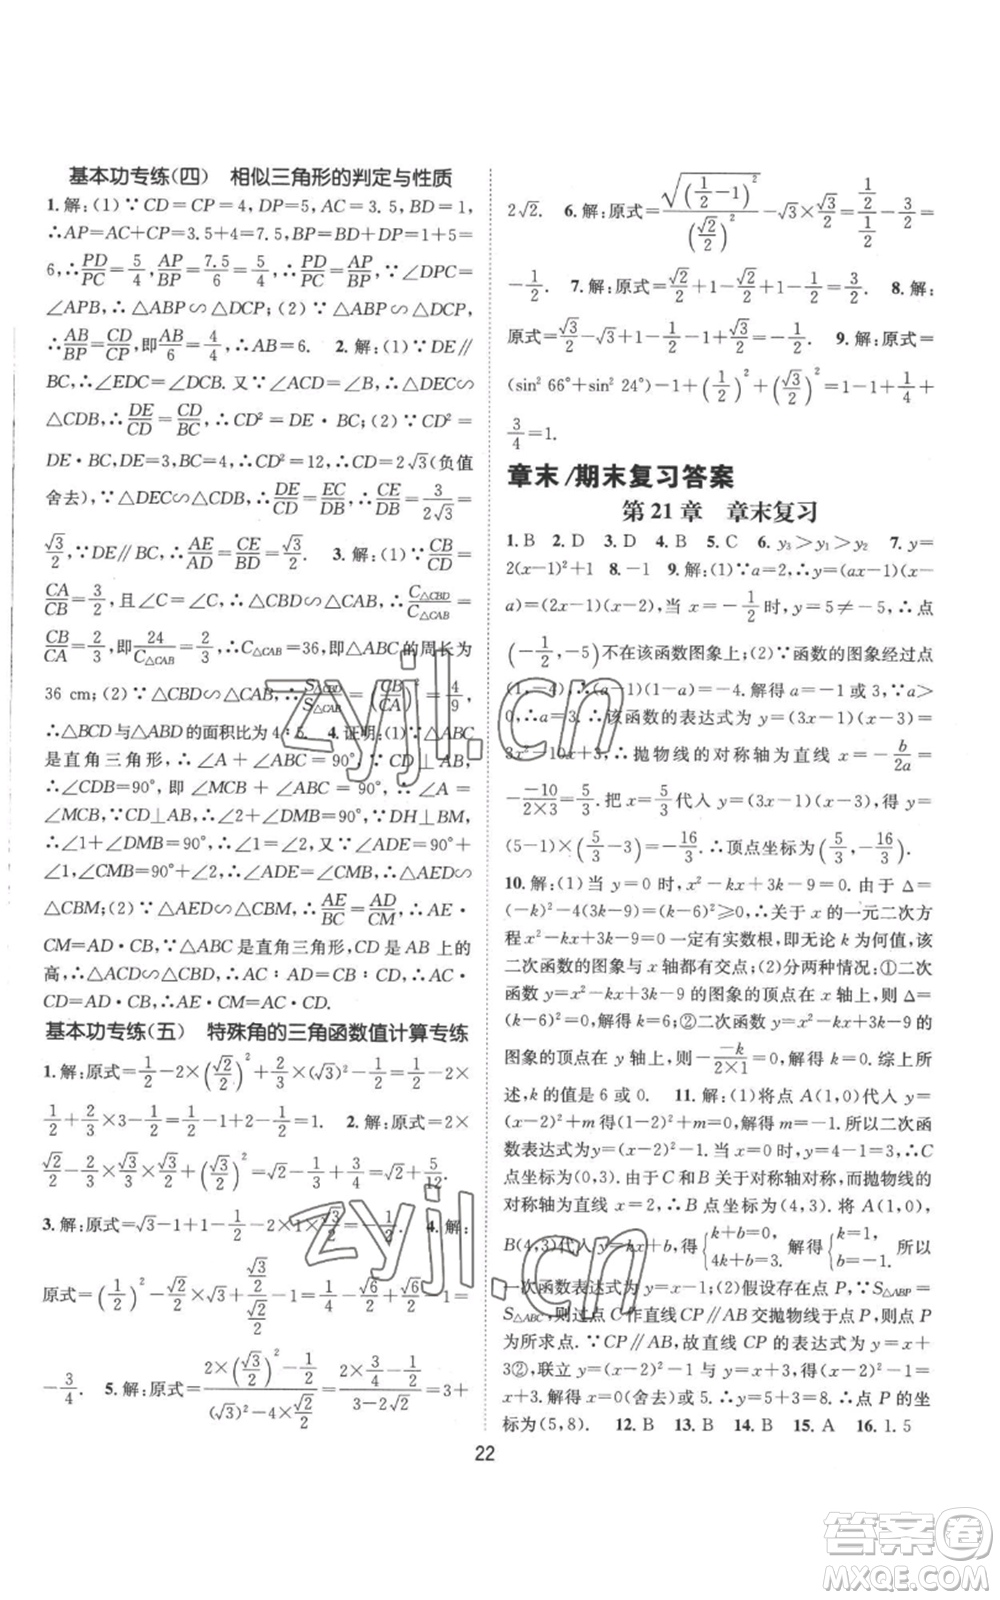 基本功专练(四) 相似三角形的判定与性质
1.解:(1)∵CD=CP=4,DP=5,AC=3.5,BD=1,
∴AP=AC+CP=3.5+4=7.5,BP=BD+CD=1+5=
6,∴PD/PC=5/4,AP/BP=7.5/6=5/4,∴PD/PC=AP/BP,∵∠DPC=
∠APB,∴△ABP∽△DCP;(2)∵△ABP∽△DCP,
∴AB/BP=CD/CP,即AB/6=4/4,∴AB=6. 2.解:(1)∵DE∥
BC,∴∠EDC=∠DCB.又∵∠A=∠A,∴△DEC∽
△CDB,∴DE/CD=CD/BC,∴CD²=DE·BC;(2)∵CD²=
DE·BC=3×4=12,∴CD²=12,∴CD=2√3(负值
舍去),∵△DEC∽△CDB,∴DE/CD=EC/DB=DE/CD=3/2√3=
√3/2,∵DE∥BC,∴AE/AD=CE/BD=√3/2. 3.解:(1)∵CB/CD=
CA/CB=3/2,且∠A=∠A,∴△CBD∽△CAB,∴C△CBD/C△CAB=
CB/CA=2/3,即24/C△CAB=2/3,∴C△CAB=36,即△ABC的周长为
36 cm;(2)∵△CBD∽△CAB,∴S△CBD/S△CAB=(CB/CA)²=4/9,
∴△BCD与△ABD的面积比为4∶5. 4.证明:(1)∵△ABC
是直角三角形,∴∠A+∠ABC=90°,∵CD⊥AB,
∴∠CDB=90°,即∠ABC+∠DCB=90°,∴∠A=
∠MCD,∵∠ADE+∠BDH=90°,∵DH⊥BM,
∴∠1+∠DMB=90°,∴∠1=∠2.又∵∠ADE+
∠1=90°,∠CMB+∠2=90°,∴∠ADE=∠CMB,
∴∠A=∠MCB,∠ADE=∠CMB,∴△AED∽
△CBM;(2)∵△AED∽△CBM,∴AE/BC=AD/CM,∴AE·
CM=AD·BC,∵△ABC是直角三角形,CD是AB上的
高,∴△ACD∽△ABC,∴AC∶AD=BC∶CD,∴AC·
CD=AD·BC,∴AE·CM=AC·CD.
基本功专练(五) 特殊角的三角函数值计算专练
1.解:原式=1/2-2×(√2/2)²+2/3×(√3)²=1/2-2×
1/2+2/3×3-1/2=1/2-1+2-1/2=1. 2.解:原式=2×
√2/2-2/3×√3/2×√3/2+(√2/2)²=√2-1/3+1/2=√2+5/12.
3.解:原式=√3-1+1-1/2-2×1×√3/2=-1/2. 4.解:
原式=(1/2)²-√2/2×√3+√3/2/√2/2=1/4-√6/2+√6/2-1=
-3/4. 5.解:原式=2×(√3/2)²-1/2/(√3)²-4×√2/2=2×3/4-1/2/3-2√2=3+
2√2. 6.解:原式=√(1/2-1)²/(√2/2)²-√3×√3/2=1/2/1/2-3/2=
-1/2. 7.解:原式=√2/2+1-√2/2+1-1/2=3/2. 8.解:
原式=√3/2-1/2-√3+1=1-√3/2. 9.解:原式=
(sin² 66°+sin² 24°)-1+(1/2)²+(√3/2)²=1-1+1/4+
3/4=1.
章末/期末复习答案
第21章 章末复习
1.B 2.D 3.D 4.B 5.C 6.y₃>y₁>y₂ 7.y=
2(x-1)²+1 8.-1 9.解:(1)∵a=2,∴y=(ax-1)(x-
a)=(2x-1)(x-2),当 x=-1/2时,y=5≠-5,∴点
(-1/2,-5)不在该函数图象上;(2)∵函数的图象经过点
(1,-4),∴(a-1)(1-a)=-4,解得a=-1或3,∵a>
0,∴a=3,∴该函数的表达式为y=(3x-1)(x-3)=
3x²-10x+3,∴抛物线的对称轴为直线 x=-b/2a=
--10/2×3=5/3.把x=5/3代入y=(3x-1)(x-3),得y=
(5-1)×(5/3-3)=-16/3,∴顶点坐标为(5/3,-16/3).
10.解:(1)当 y=0时,x²-kx+3k-9=0.由于Δ=
(-k)²-4(3k-9)=(k-6)²≥0,∴关于x的一元二次方
程x²-kx+3k-9=0一定有实数根,即无论k为何值,该
二次函数的图象与x轴都有交点;(2)分两种情况:①二次
函数y=x²-kx+3k-9的图象的顶点在x轴上,则Δ=
(k-6)²=0,解得k=6;②二次函数y=x²-kx+3k-9
的图象的顶点在y轴上,则--k/2×1=0,解得k=0.综上所
述,k的值是6或0. 11.解:(1)将点A(1,0)代入y=
(x-2)²+m,得(1-2)²+m=0,解得m=-1.所以二次函
数表达式为y=(x-2)²-1.当x=0时,y=4-1=3,∴C
点坐标为(0,3).由于C和B关于对称轴对称,而抛物线的
对称轴为直线x=2,∴B点坐标为(4,3).将A(1,0)、
B(4,3)代入y=kx+b,得{k+b=0,4k+b=3.解得{k=1,b=-1.所以
一次函数表达式为y=x-1;(2)假设存在点P,∵S△ABP=
S△ABC,则过点C作直线CP∥AB交抛物线于点P,则点P
为所求点.∵CP∥AB,故直线CP的表达式为y=x+
3②,联立①②,得x²-4x+3=x+3,则y=
x+3.解得x=0(舍去)或5.当x=5时,y=8,∴点P的坐
标为(5,8). 12.B 13.B 14.B 15.A 16.1.5
22
zyjl.cn
zyjl.cn
答案圈
MXQE.COM